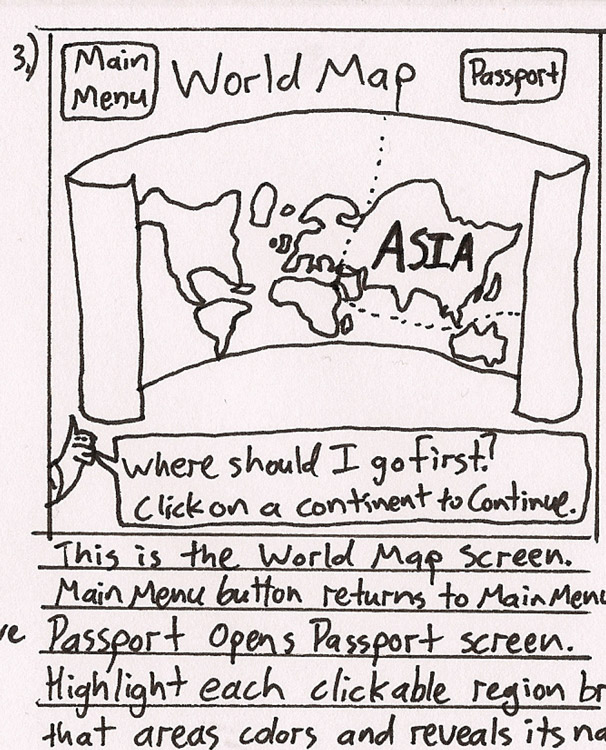 3.)
Main
Menu
World Map
Passport
ASIA
Where should I go first?
Click on a continent to Continue.
This is the World Map Screen.
Main Menu button returns to Main Menu
Passport Opens Passport screen.
Highlight each clickable region br
that areas colors and reveals its na